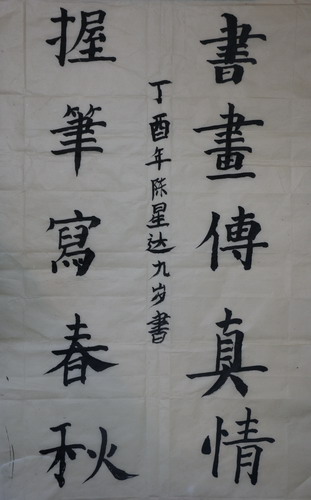 書畫傳真情
握筆寫春秋
丁酉年陈星达九岁書